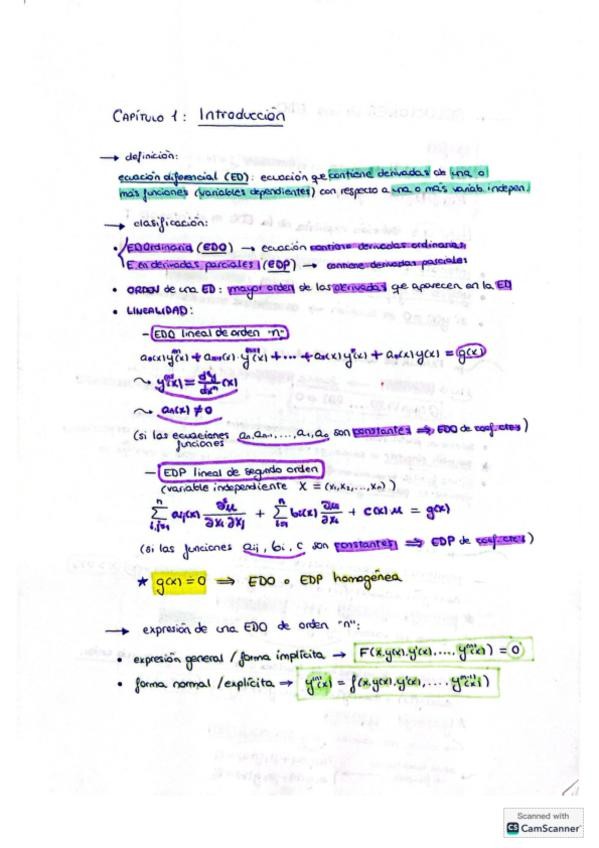 CAPÍTULO 1: Introducción
→ definición:
ecuación diferencial (ED): ecuación que contiene derivadas de una o
más funciones (variables dependientes) con respecto a una o más variab. indepen.
→ clasificación:
• EDOrdinaria (EDO) → ecuación contiene derivadas ordinarias
E. en derivadas parciales (EDP) → contiene derivadas parciales
• ORDEN de una ED: mayor orden de las derivadas que aparecen en la ED
• LINEALIDAD:
– EDO lineal de orden "n"
aₙ(x)y⁽ⁿ⁾(x) + aₙ₋₁(x)·y⁽ⁿ⁻¹⁾(x) + ... + a₁(x)y'(x) + a₀(x)y(x) = g(x)
↝ y⁽ⁿ⁾(x) = dⁿy/dxⁿ (x)
↝ aₙ(x) ≠ 0
(si las ecuaciones aₙ, aₙ₋₁, ..., a₁, a₀ son constantes ⇒ EDO de coef. ctes)
funciones
– EDP lineal de segundo orden
(variable independiente X = (x₁, x₂, ..., xₙ))
∑ⁿᵢ,ⱼ₌₁ aᵢⱼ(x) ∂²u/∂xᵢ∂xⱼ + ∑ⁿᵢ₌₁ bᵢ(x) ∂u/∂xᵢ + c(x) u = g(x)
(si las funciones aᵢⱼ, bᵢ, c son constantes ⇒ EDP de coef. ctes)
★ g(x) = 0 ⇒ EDO o EDP homogénea
→ expresión de una EDO de orden "n":
• expresión general / forma implícita → F(x, y(x), y'(x), ..., y⁽ⁿ⁾(x)) = 0
• forma normal / explícita → y⁽ⁿ⁾(x) = f(x, y(x), y'(x), ..., y⁽ⁿ⁻¹⁾(x))
Scanned with
CS CamScanner